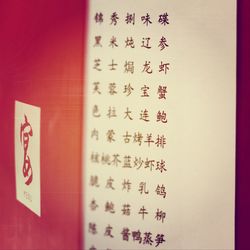 锦秀捌味碟
黑米炖辽参
芝士焗龙虾
芙蓉珍宝蟹
色拉大连鲍
内蒙古烤羊排
核桃芥蓝炒虾球
脆皮炸乳鸽
杏鲍菇牛柳
陈皮酱鸭蒸笋